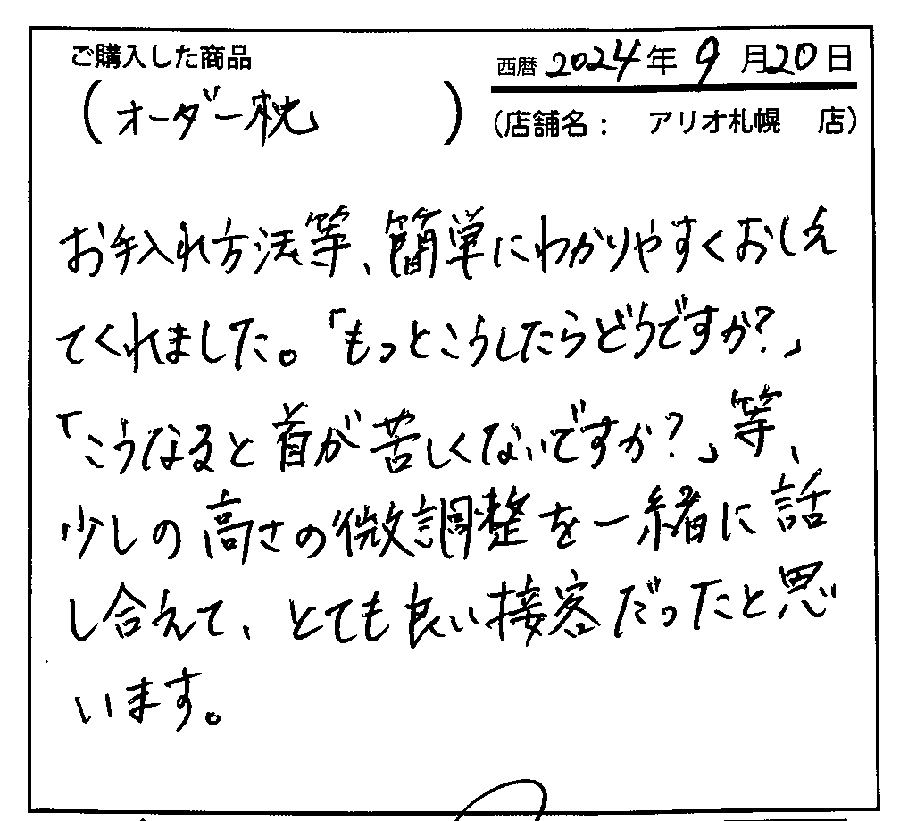 ご購入した商品
西暦 2024年 9月20日
(オーダー枕)
(店舗名: アリオ札幌 店)
お手入れ方法等、簡単にわかりやすくおしえ
てくれました。「もっとこうしたらどうですか?」
「こうなると首が苦しくないですか?」等、
少しの高さの微調整を一緒に話
し合えて、とても良い接客だったと思
います。